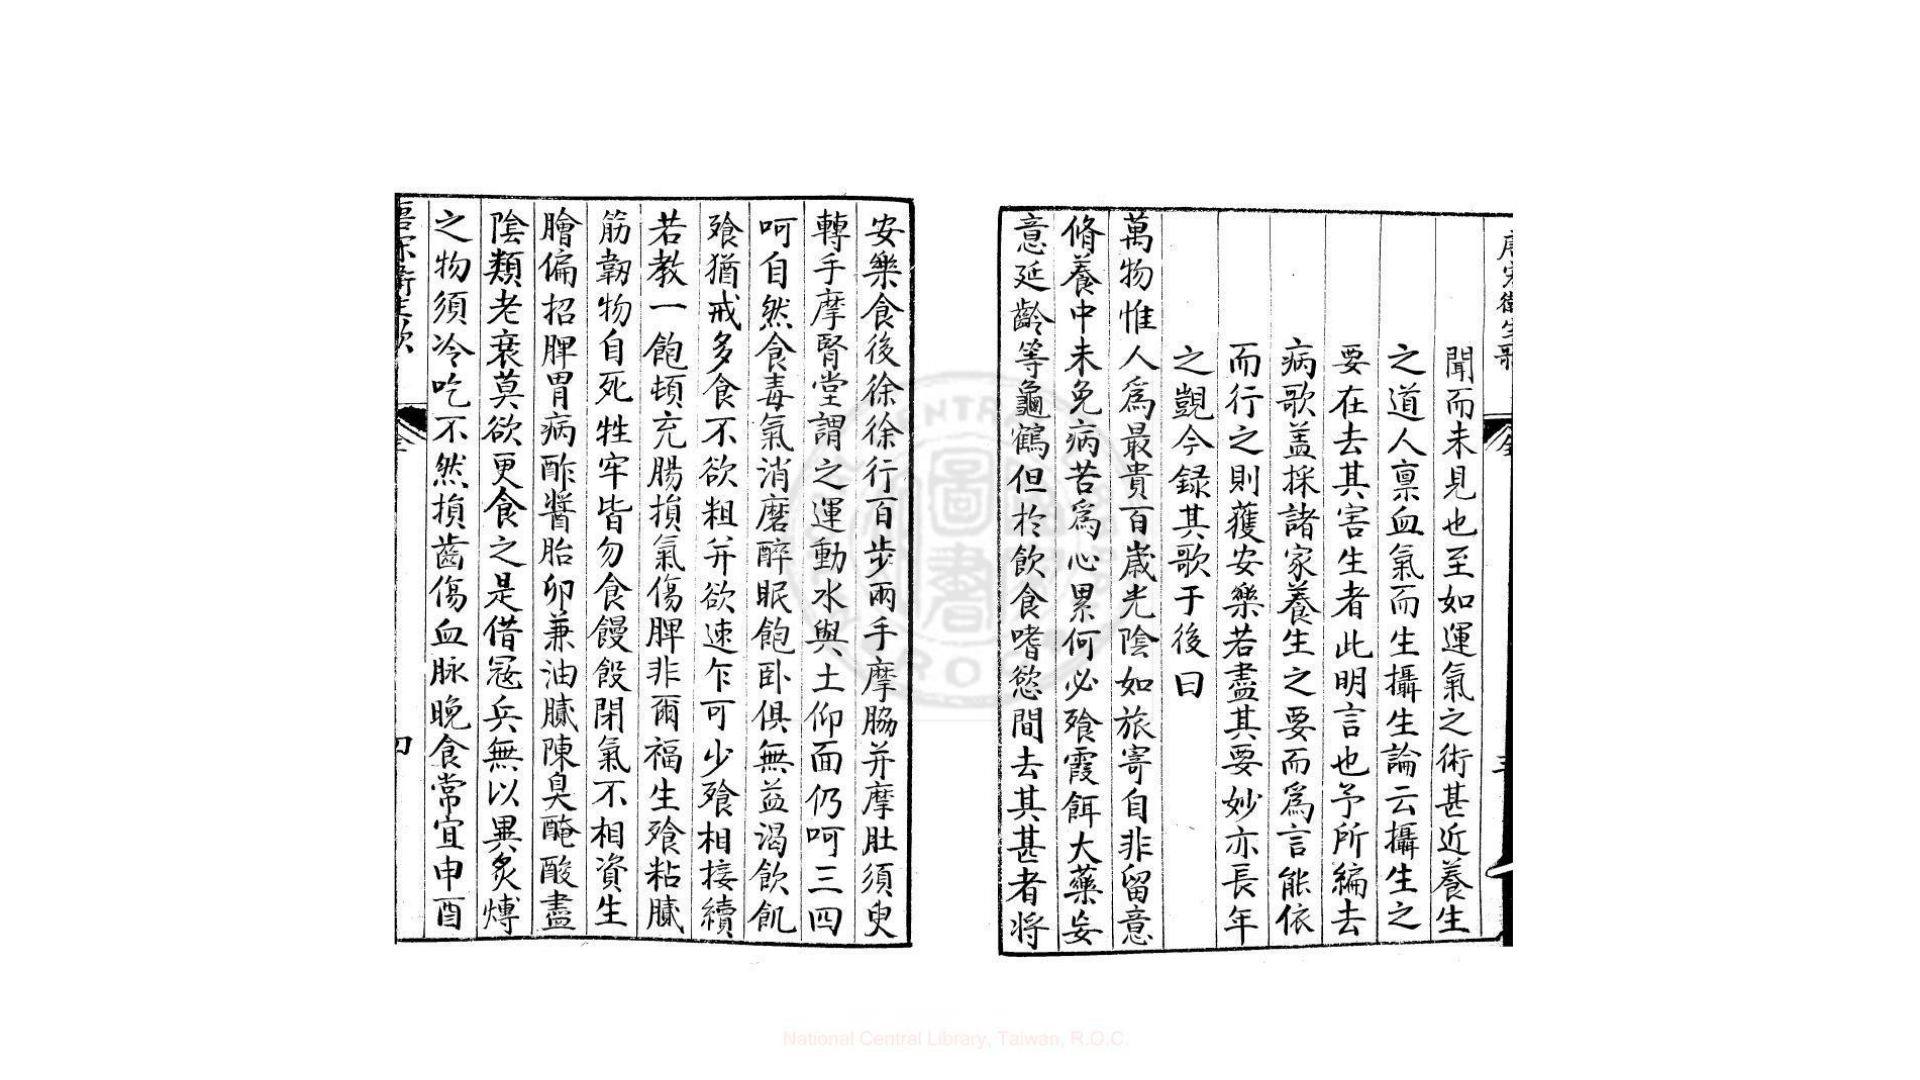 唐宋衛生歌 全 三
聞而未見也至如運氣之術甚近養生
之道人稟血氣而生攝生論云攝生之
要在去其害生者此明言也予所編去
病歌盖採諸家養生之要而爲言能依
而行之則獲安樂若盡其要妙亦長年
之覬今録其歌于後曰
萬物惟人爲最貴百歲光陰如旅寄自非留意
脩養中未免病苦爲心累何必飱霞餌大藥妄
意延齡等龜鶴但於飲食嗜慾間去其甚者將
安樂食後徐徐行百步兩手摩脇并摩肚須臾
轉手摩腎堂謂之運動水與土仰面仍呵三四
呵自然食毒氣消磨醉眠飽卧俱無益渴飲飢
飱猶戒多食不欲粗并欲速乍可少飱相接續
若教一飽頓充腸損氣傷脾非爾福生飱粘膩
筋韌物自死牲牢皆勿食饅餿閉氣不相資生
膾偏招脾胃病酢醬胎卵兼油膩陳臭醃酸盡
陰類老衰莫欲更食之是借寇兵無以異炙煿
之物須冷吃不然損齒傷血脉晚食常宜申酉
唐宋衛生歌 全 四
圖書
National Central Library, Taiwan, R.O.C.